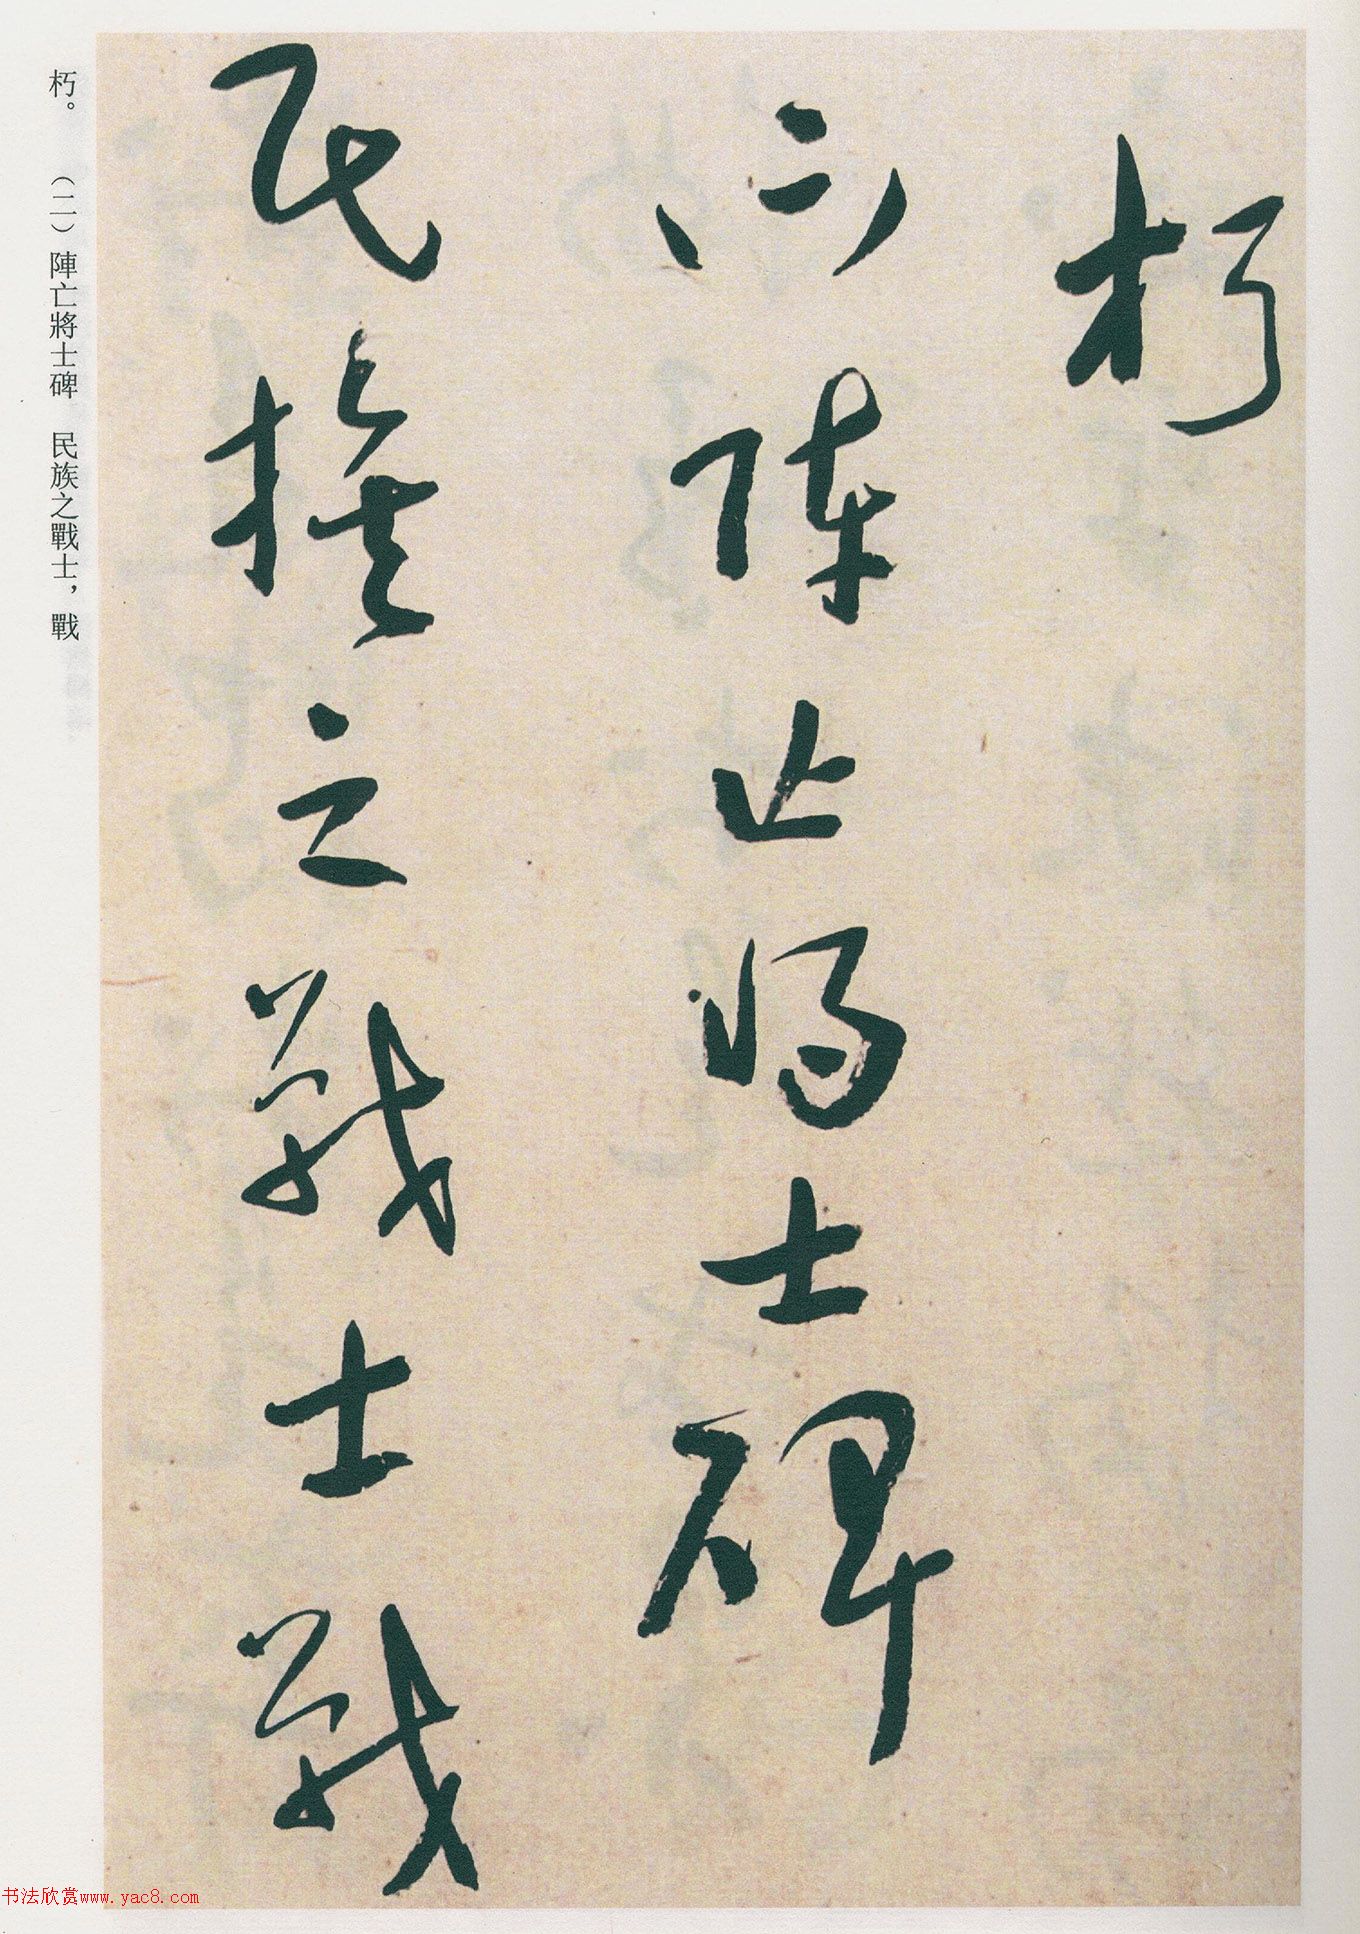 朽
（二）陣亡將士碑
民族之戰士戰
朽。　（二）陣亡將士碑　民族之戰士，戰
书法欣赏www.yac8.com